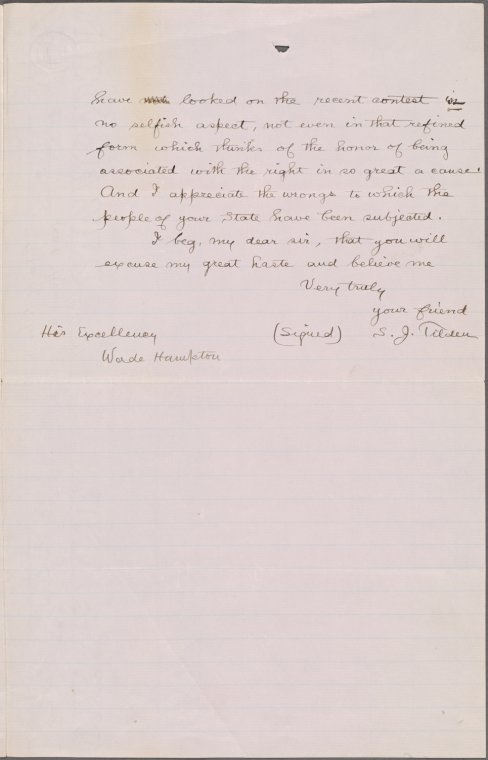 have looked on the recent contest in
no selfish aspect, not even in that refined
form which thinks of the honor of being
associated with the right in so great a cause!
And I appreciate the wrongs to which the
people of your State have been subjected.
I beg, my dear sir, that you will
excuse my great haste and believe me
Very truly
your friend
His Excellency (Signed) S. J. Tilden
Wade Hampton